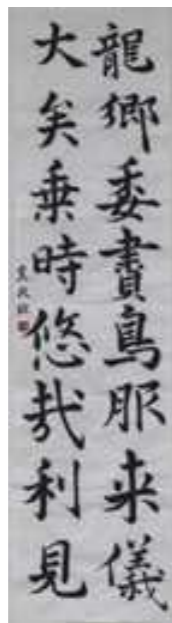 龍鄉委賮鳥服来儀
大矣乗時悠哉利見